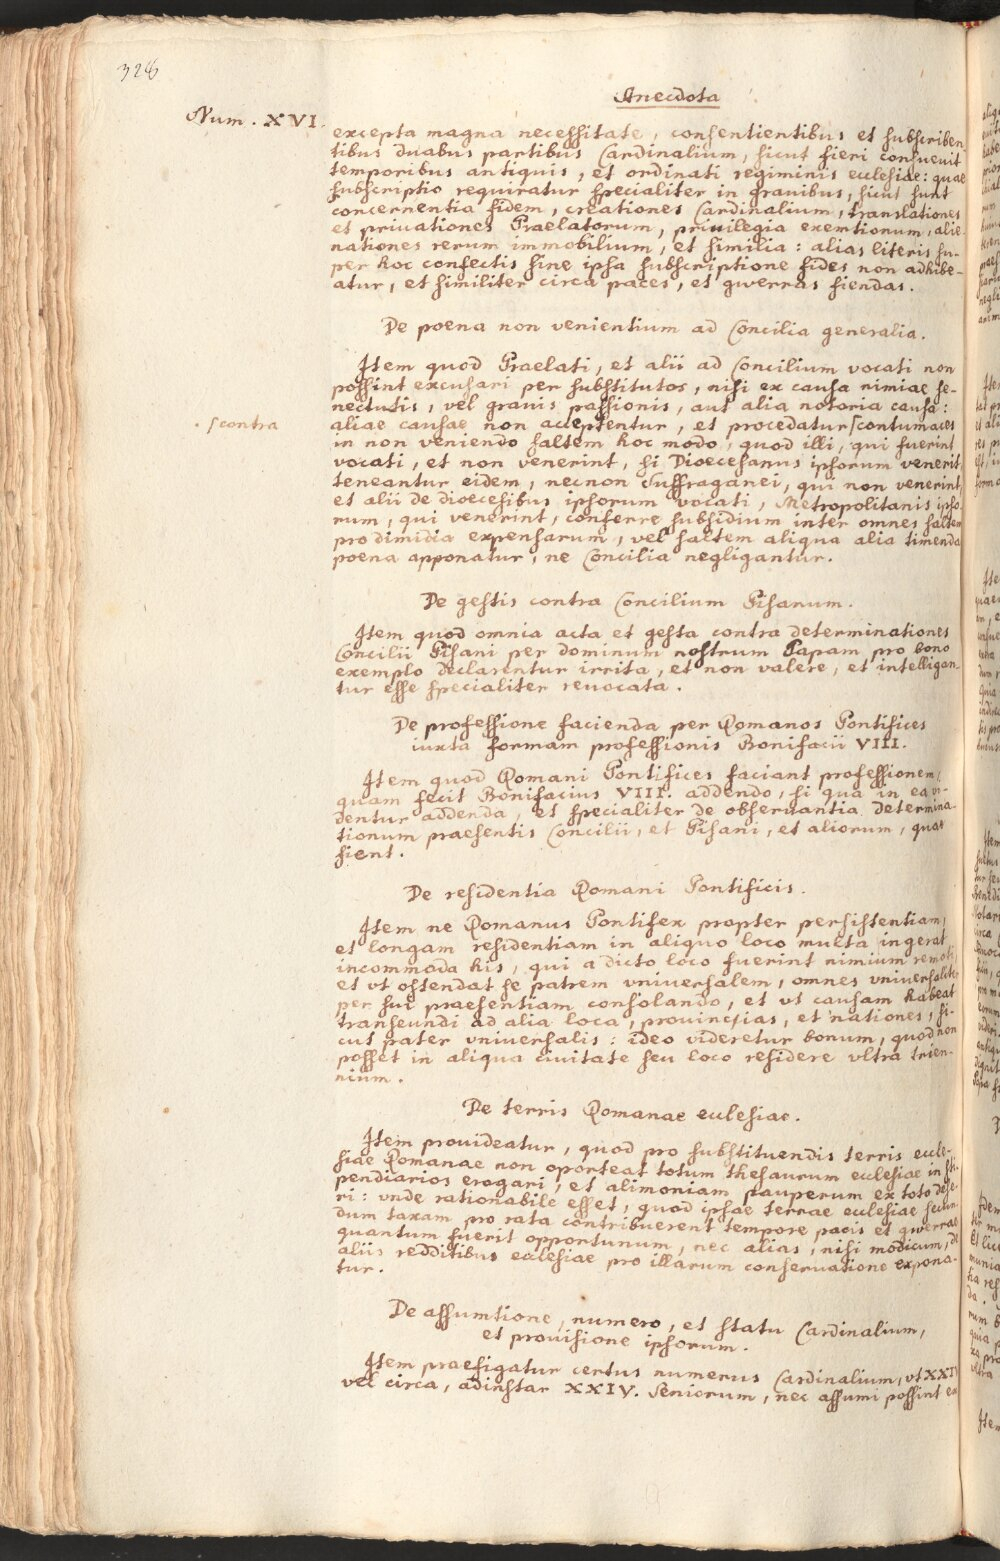 328
Anecdota
Num. XVI.
excepta magna necessitate, consentientibus et subscriben
tibus duabus partibus Cardinalium, sicut fieri consuevit
temporibus antiquis, et ordinati regiminis ecclesiae: quae
subscriptio requiratur specialiter in gravibus, sicut sunt
concernentia fidem, creationes Cardinalium, translationes
et privationes Praelatorum, privilegia exemtionum, alie-
nationes rerum immobilium, et similia: alias literis su-
per hoc confectis sine ipsa subscriptione fides non adhibe-
atur, et similiter circa paces, et gwerras fiendas.
De poena non venientium ad Concilia generalia.
Item quod Praelati, et alii ad Concilium vocati non
possint excusari per substitutos, nisi ex causa nimiae se-
nectutis, vel gravis passionis, aut alia notoria causa:
ſcontra
aliae causae non acceptentur, et procedatur ſcontumaces
in non veniendo saltem hoc modo, quod illi, qui fuerint
vocati, et non venerint, si Dioecesanus ipsorum venerit
teneantur eidem, necnon Suffraganei, qui non venerint,
et alii de dioecesibus ipsorum vocati, Metropolitanis ipso-
rum, qui venerint, conferre subsidium inter omnes saltem
pro dimidia expensarum, vel saltem aliqua alia timenda
poena apponatur, ne Concilia negligantur.
De gestis contra Concilium Pisanum.
Item quod omnia acta et gesta contra determinationes
Concilii Pisani per dominum nostrum Papam pro bono
exemplo declarentur irrita, et non valere, et intelligan-
tur esse specialiter revocata.
De professione facienda per Romanos Pontifices
iuxta formam professionis Bonifacii VIII.
Item quod Romani Pontifices faciant professionem,
quam fecit Bonifacius VIII. addendo, si qua in ea vi-
dentur addenda, et specialiter de observantia determina-
tionum praesentis Concilii, et Pisani, et aliorum, quae
fient.
De residentia Romani Pontificis.
Item ne Romanus Pontifex propter persistentiam,
et longam residentiam in aliquo loco multa ingerat
incommoda his, qui a dicto loco fuerint nimium remoti,
et vt ostendat se patrem vniversalem, omnes vniversaliter
per sui praesentiam consolando, et vt causam habeat
transeundi ad alia loca, provincias, et nationes, si-
cut pater vniversalis: ideo videretur bonum, quod non
posset in aliqua civitate seu loco residere vltra trien-
nium.
De terris Romanae ecclesiae.
Item provideatur, quod pro substituendis terris eccle-
siae Romanae non oporteat totum thesaurum ecclesiae in sti-
pendiarios erogari, et alimoniam pauperum ex toto dese-
ri: vnde rationabile esset, quod ipsae terrae ecclesiae secun-
dum taxam pro rata contribuerent tempore pacis et gwerrae
quantum fuerit opportunum, nec alias, nisi modicum, de
aliis redditibus ecclesiae pro illarum conservatione expona-
tur.
De assumtione, numero, et statu Cardinalium,
et provisione ipsorum.
Item praefigatur certus numerus Cardinalium, vt XXIV
vel circa, adinstar XXIV. Seniorum, nec assumi possint ex